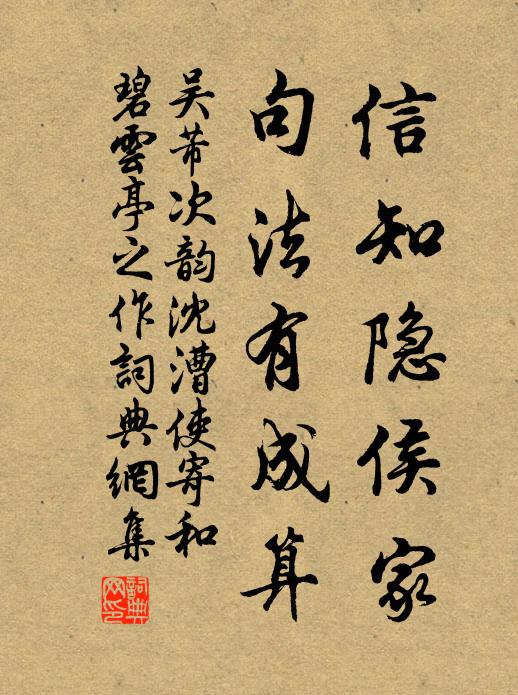 信知隐侯家
句法有成算
吴芾次韵沈漕使寄和
碧雲亭之作詞典網集
詞典網印